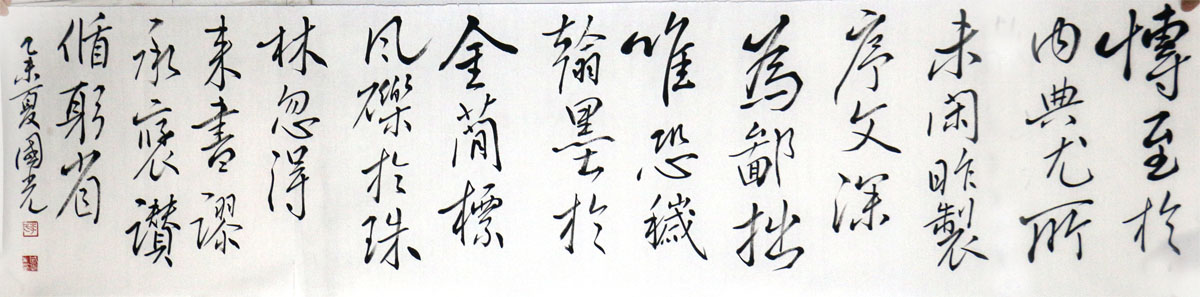 博至於
内典尤所
未閑昨製
序文深
為鄙拙
唯恐穢
翰墨於
金簡標
瓦礫於珠
林忽得
来書謬
承褒讃
循躬省
乙未夏國光